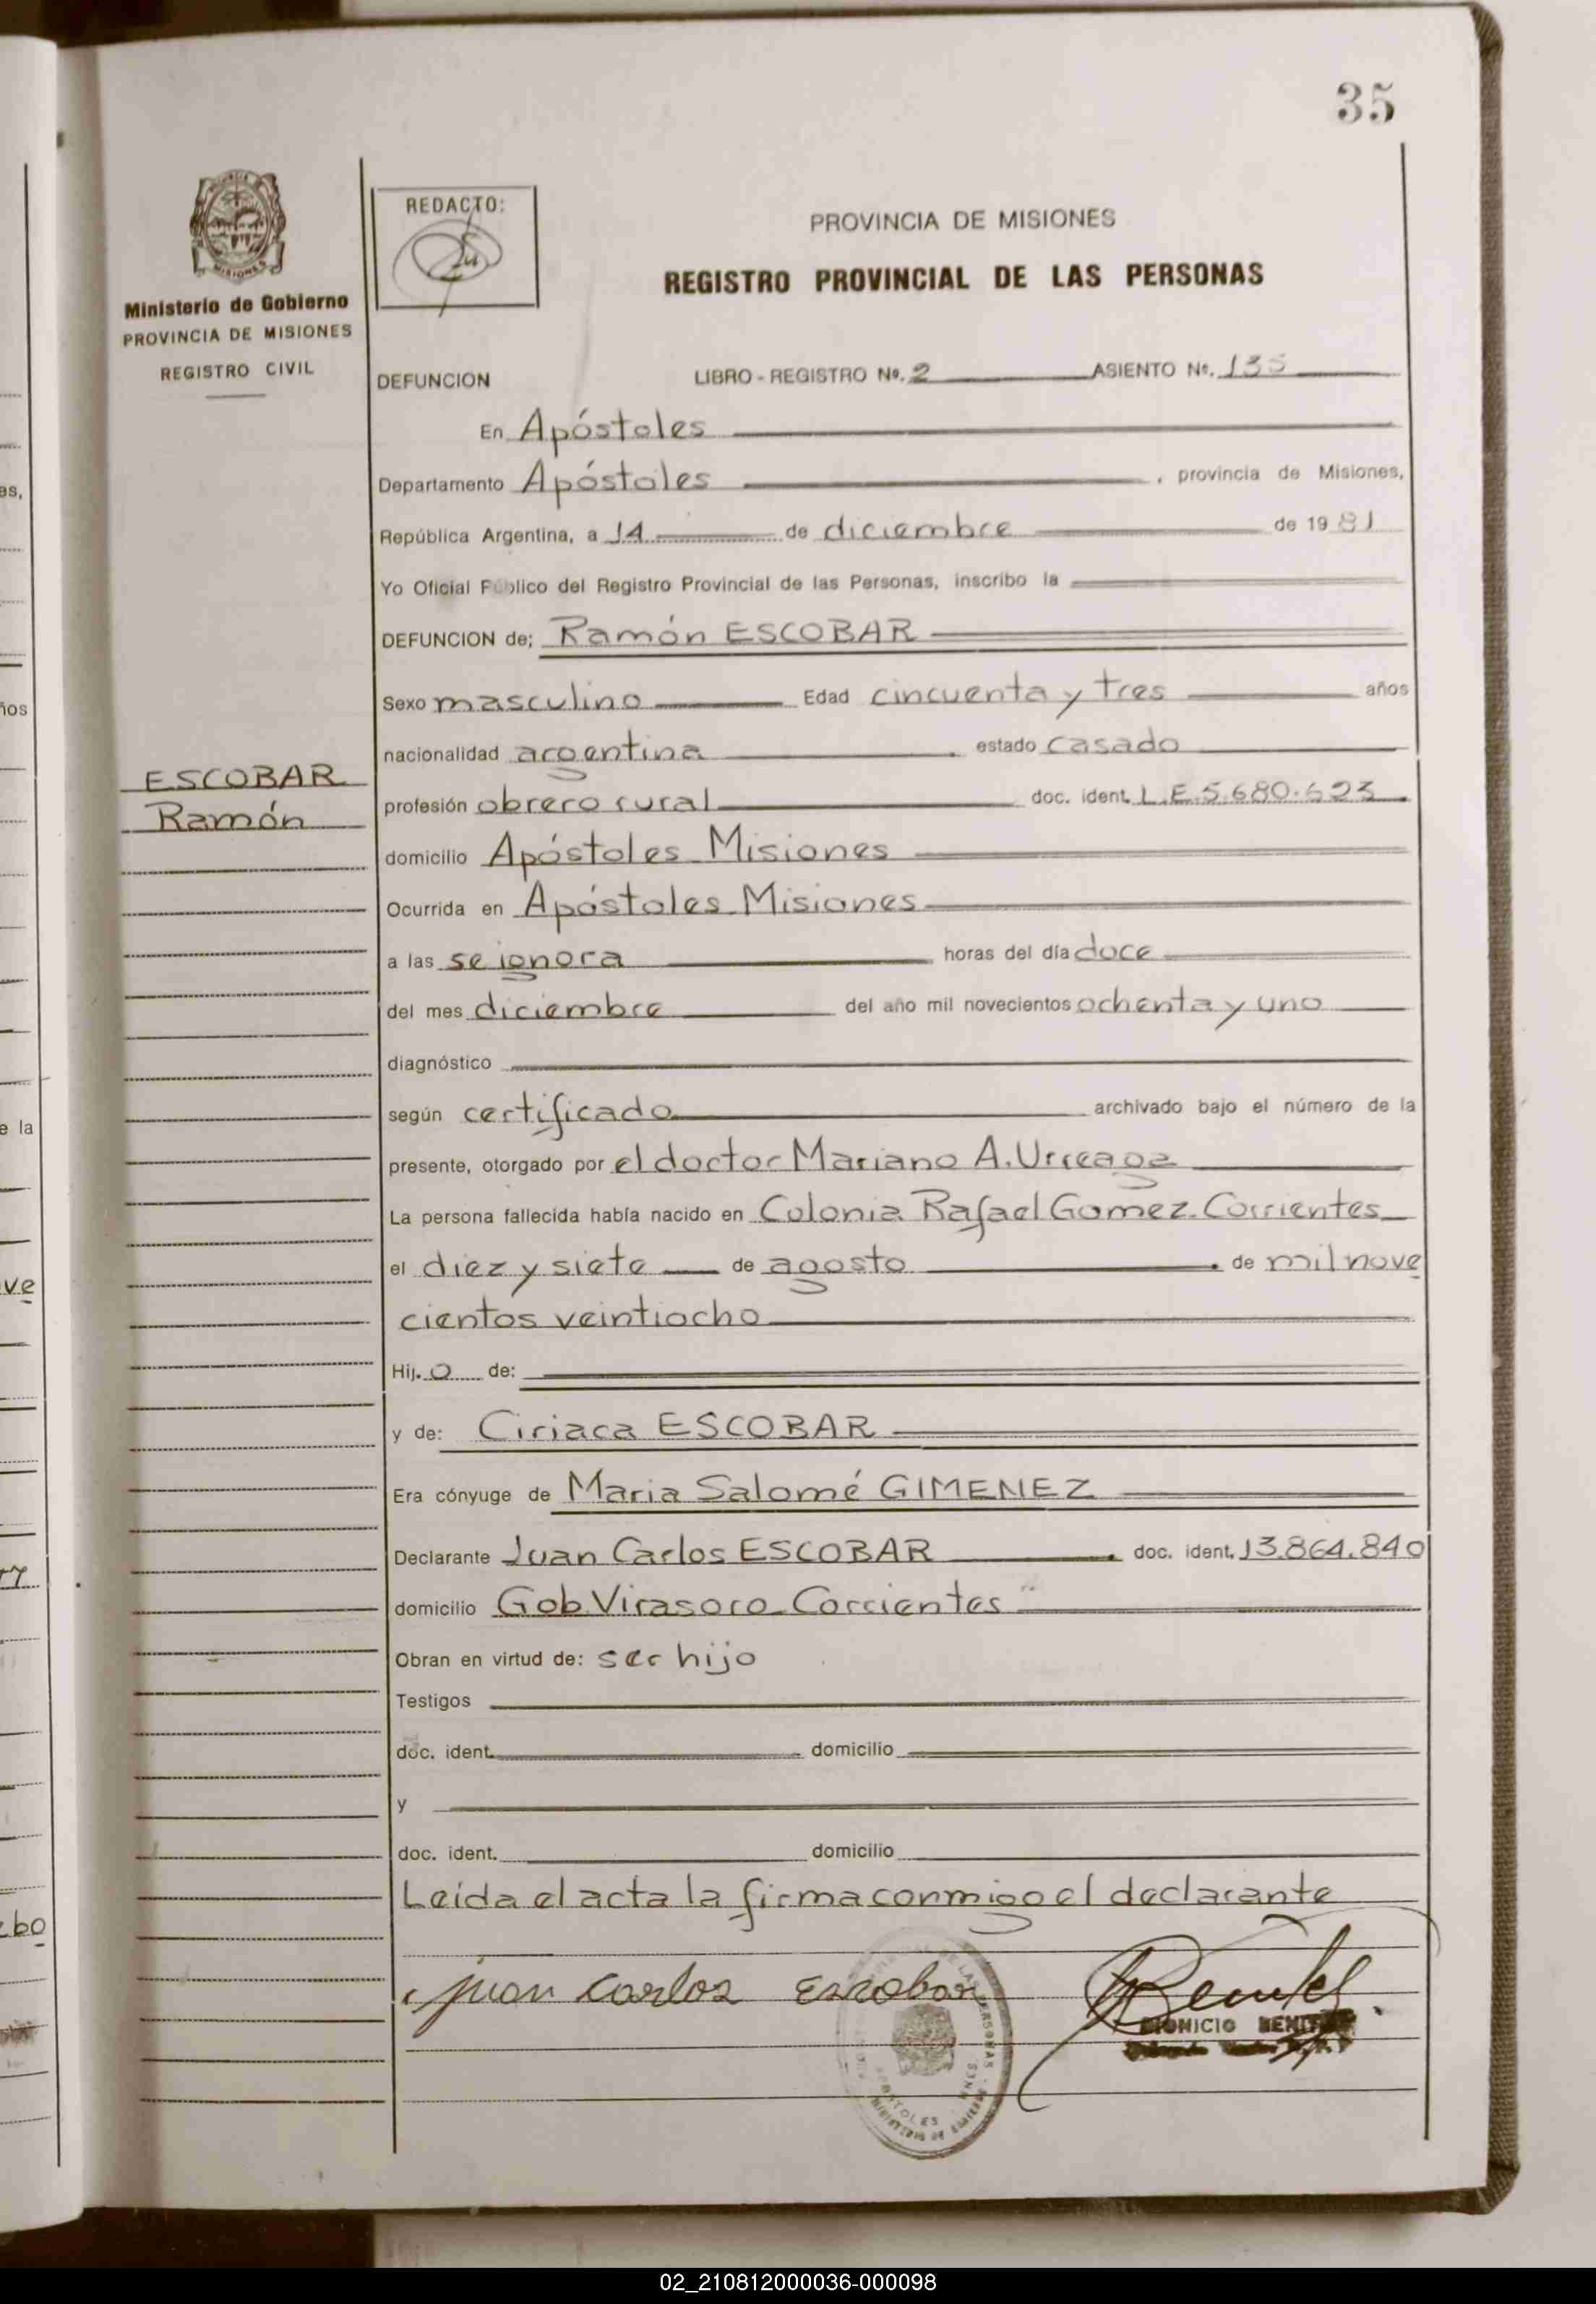 35
MISIONES
Ministerio de Gobierno
PROVINCIA DE MISIONES
REGISTRO CIVIL
REDACTO:
PROVINCIA DE MISIONES
REGISTRO PROVINCIAL DE LAS PERSONAS
DEFUNCION LIBRO - REGISTRO Nº. 2 ASIENTO Nº. 135
En Apóstoles
Departamento Apóstoles , provincia de Misiones,
República Argentina, a 14 de diciembre de 1981
Yo Oficial Público del Registro Provincial de las Personas, inscribo la
DEFUNCION de; Ramón ESCOBAR
Sexo masculino Edad cincuenta y tres años
nacionalidad argentina estado casado
ESCOBAR
Ramón
profesión obrero rural doc. ident. L.E.5.680.623
domicilio Apóstoles Misiones
Ocurrida en Apóstoles Misiones
a las se ignora horas del día doce
del mes diciembre del año mil novecientos ochenta y uno
diagnóstico
según certificado archivado bajo el número de la
presente, otorgado por el doctor Mariano A. Urreaga
La persona fallecida había nacido en Colonia Rafael Gomez. Corrientes
el diez y siete de agosto de mil nove
cientos veintiocho
Hij. o de:
y de: Ciriaca ESCOBAR
Era cónyuge de Maria Salomé GIMENEZ
Declarante Juan Carlos ESCOBAR doc. ident. 13.864.840
domicilio Gob. Virasoro Corrientes
Obran en virtud de: ser hijo
Testigos
doc. ident. domicilio
y
doc. ident. domicilio
Leída el acta la firma conmigo el declarante
juan carlos Escobar
DIONICIO BENITEZ
APOSTOLES
02_210812000036-000098